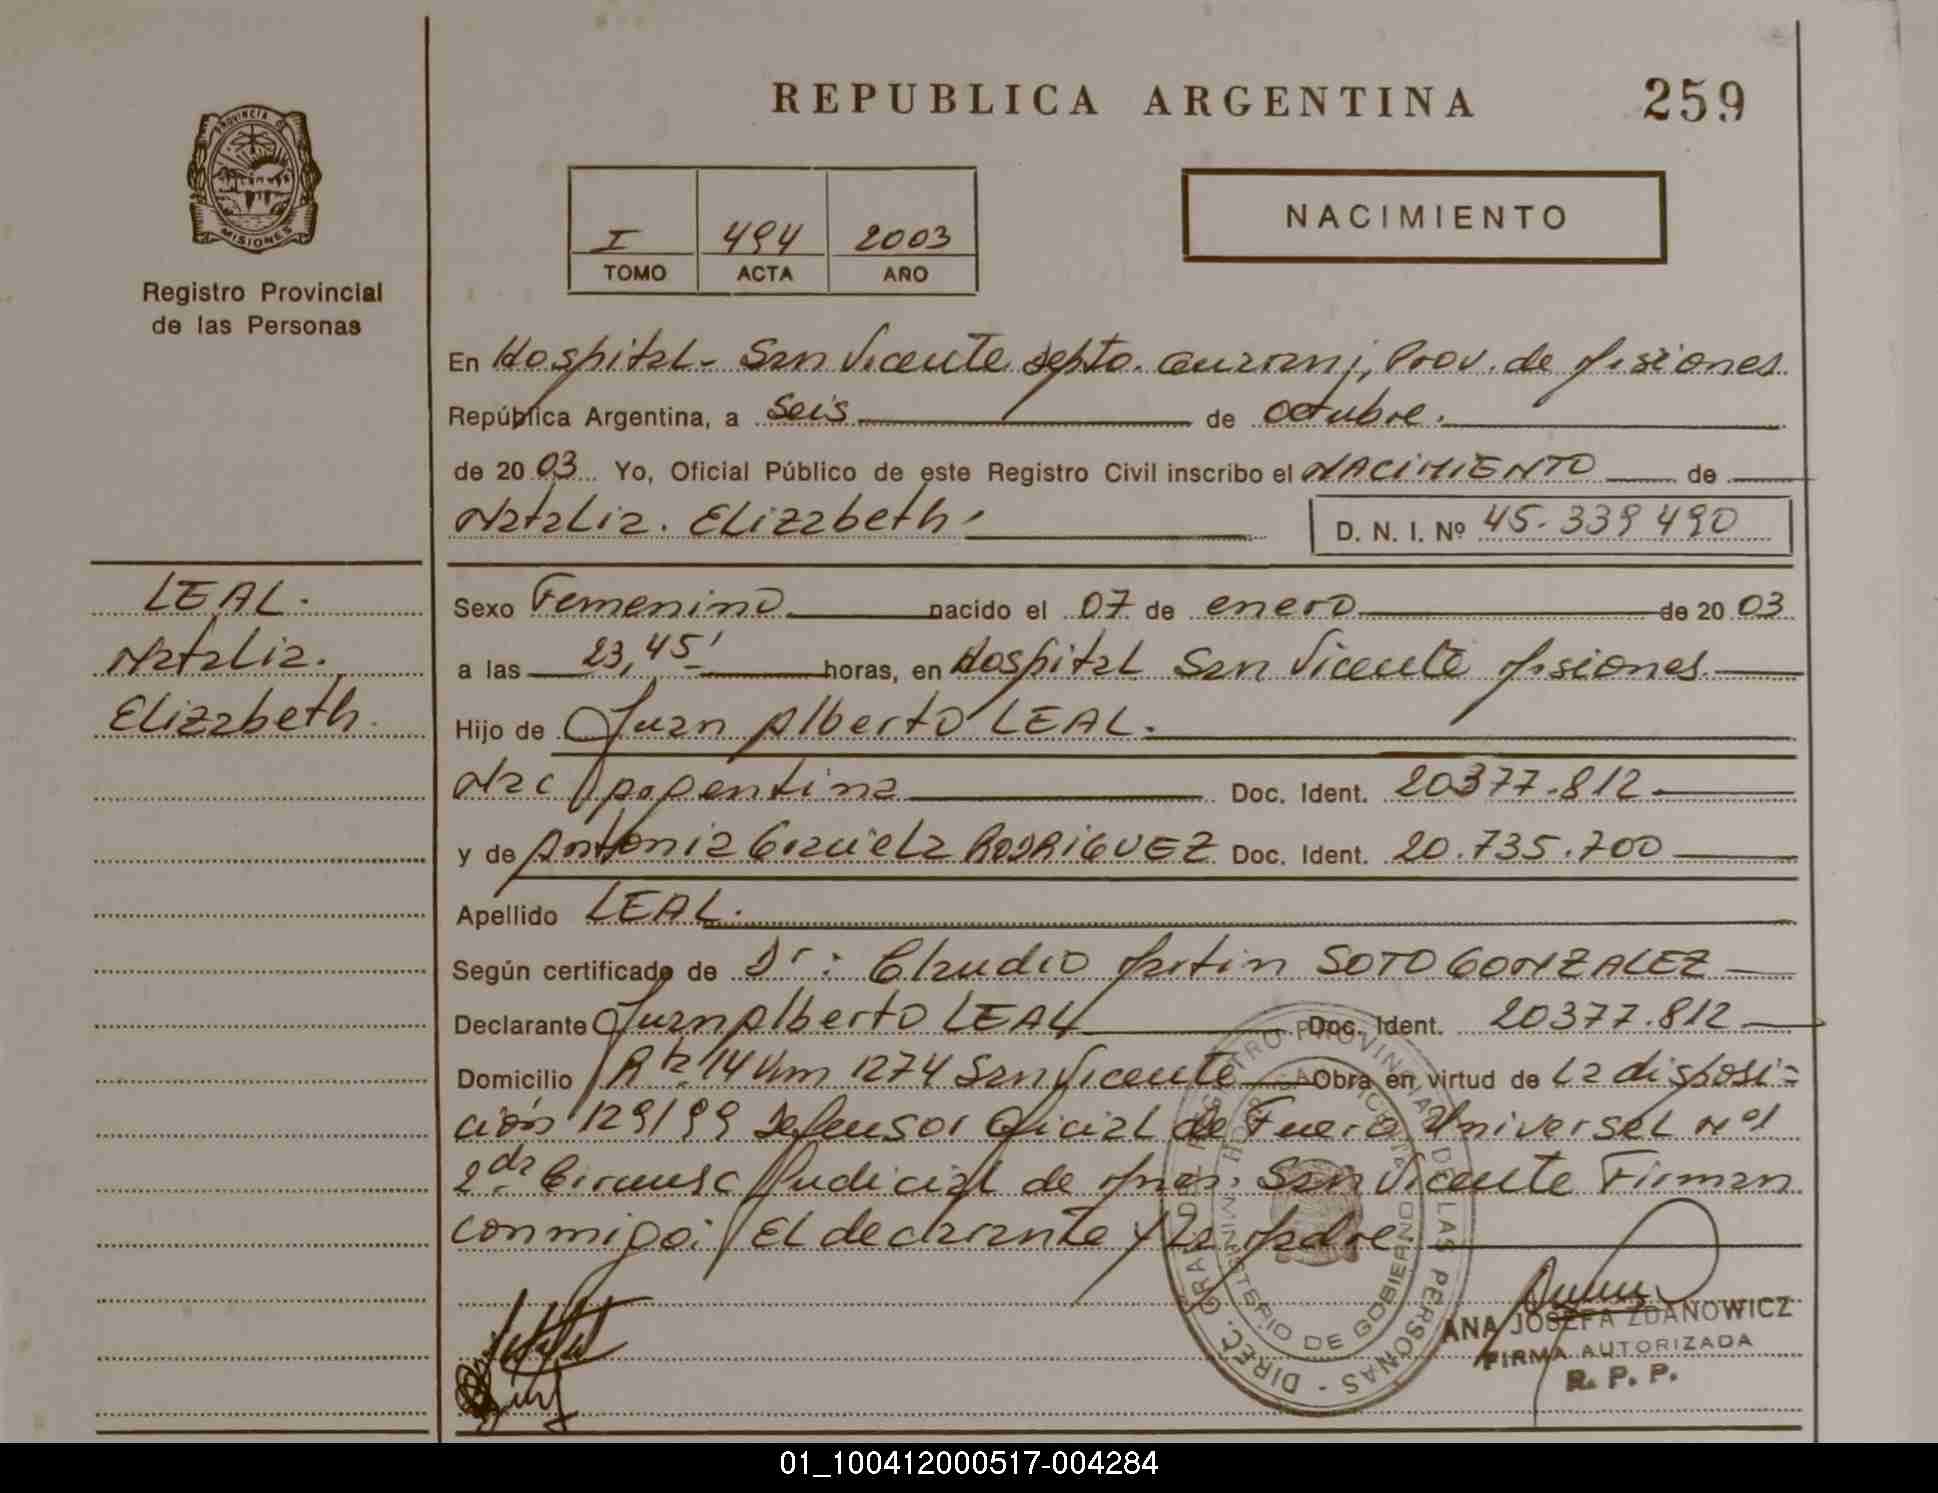 REPUBLICA ARGENTINA
259
PROVINCIA DE
MISIONES
Registro Provincial
de las Personas
I 494 2003
TOMO ACTA AÑO
NACIMIENTO
En Hospital - San Vicente Depto. Guarani, Prov. de Misiones
República Argentina, a Seis de octubre.
de 2003 Yo, Oficial Público de este Registro Civil inscribo el NACIMIENTO de
Natalia. Elizabeth.
D. N. I. Nº 45.339490
LEAL.
Natalia.
Elizabeth.
Sexo Femenino nacido el 07 de enero de 2003
a las 23,45' horas, en Hospital San Vicente Misiones.
Hijo de Juan Alberto LEAL.
Nac Argentina Doc. Ident. 20377.812
y de Antonia Graciela RODRIGUEZ Doc. Ident. 20.735.700
Apellido LEAL.
Según certificado de Dr: Claudio Martin SOTO GONZALEZ
Declarante Juan Alberto LEAL Doc. Ident. 20377.812
Domicilio Rta 14 Km 1274 San Vicente Obra en virtud de La disposi=
ción 129/99 Defensor Oficial de Fuero Universal Nº1
2da Circunsc Judicial de Mnes. San Vicente Firman
conmigo: El declarante y la Madre
DIREC. GRAL. DEL REGISTRO PROVINCIAL DE LAS PERSONAS
MINISTERIO DE GOBIERNO
ANA JOSEFA ZDANOWICZ
FIRMA AUTORIZADA
R. P. P.
01_100412000517-004284